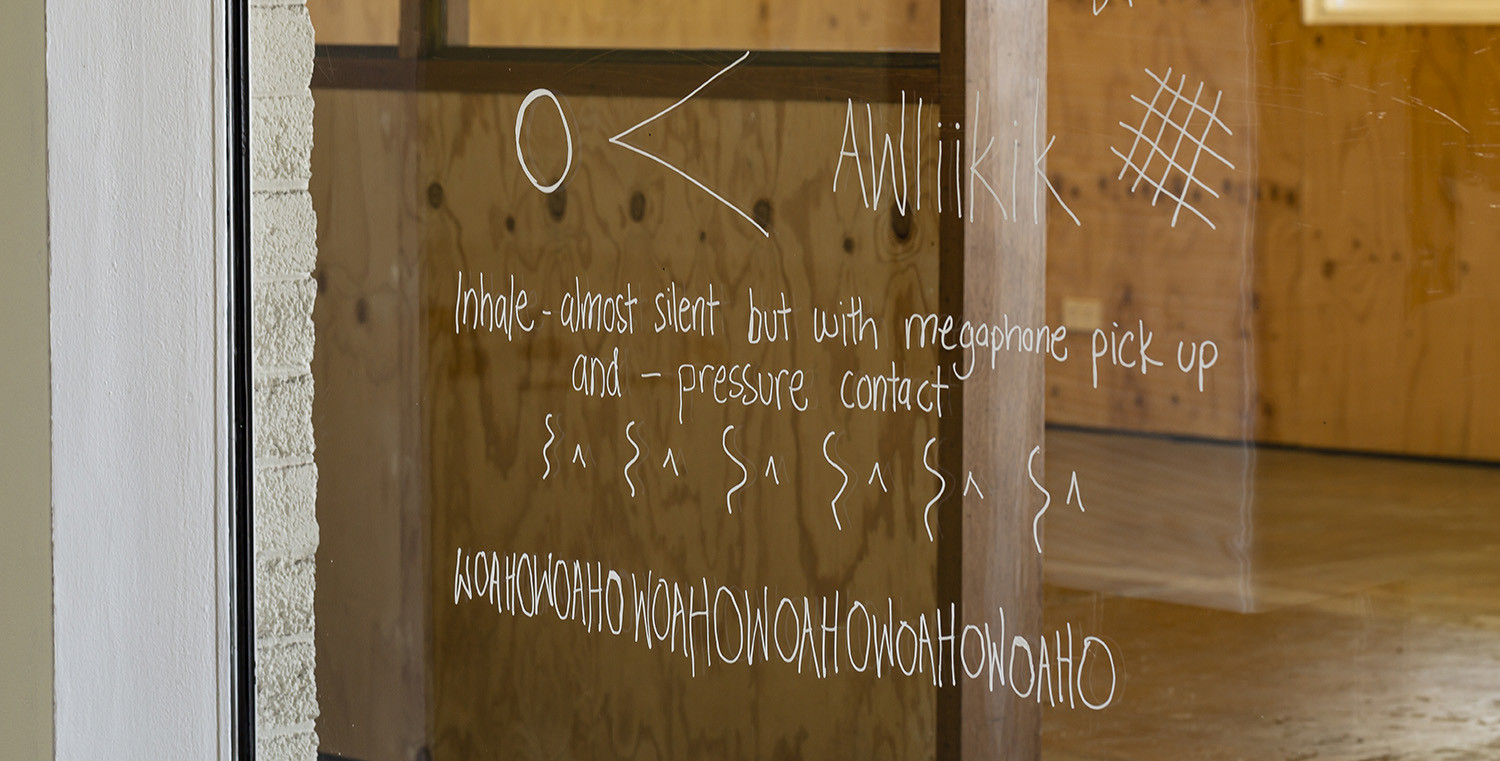 O < AWliikik
Inhale - almost silent but with megaphone pick up
and - pressure contact
} ^ } ^ } ^ } ^ } ^ } ^
WOAHOWOAHOWOAHOWOAHOWOAHOWOAHO